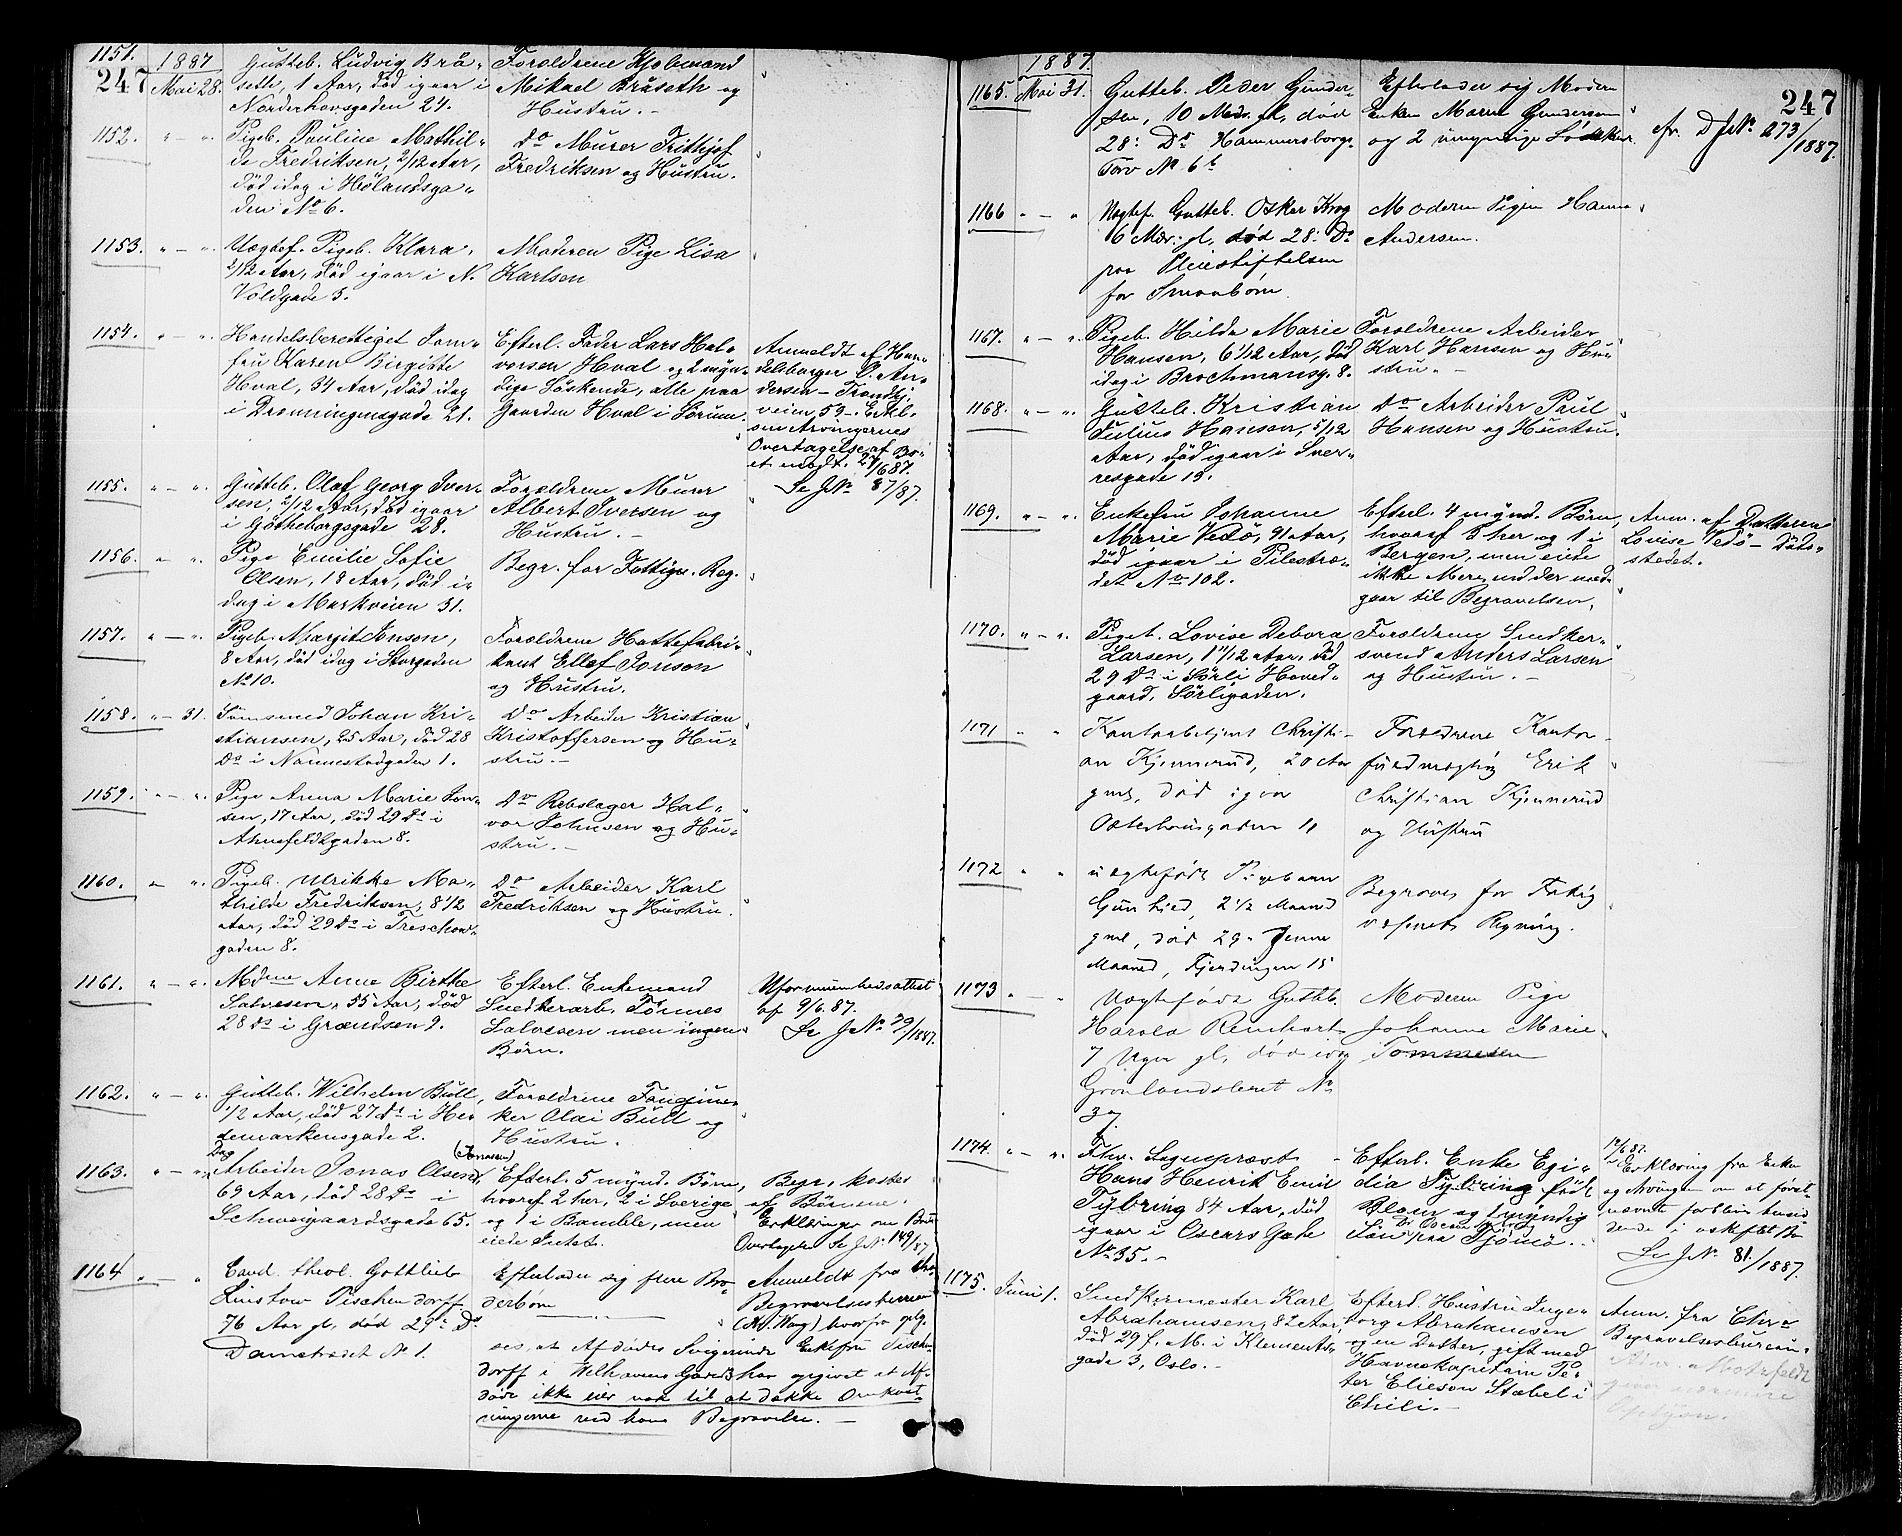 247
1151.
1887
Mai 28.
Gutteb. Ludvig Brå-
seth, 1 Aar, død igaar i
Norderhovsgaden 24.
Forældrene
Mikael Bråseth og
Hustru. -
1152.
" - "
Pigeb. Pauline Mathil-
de Fredriksen, 2/12 Aar,
død idag i Hølandsga-
den No 6.
Do Murer Frithjof
Fredriksen og Hustru.
1153.
" - "
Uægtef. Pigeb. Klara,
2/12 Aar, død igaar i N.
Voldgade 5.
Moderen Pige Lisa
Karlsen
1154.
" - "
Handelsberettiget Jom-
fru Karen Birgitte
Hval, 34 Aar, død idag
i Dronningensgade 21.
Efterl. Fader Lars Hal-
vorsen Hval og 2 myn-
dige Søskende, alle paa
Gaarden Hval i Sørum
Anmeldt af Han-
delsborger O. An-
dersen - Trondhj.
veien 59 - Erkl.
om Arvingernes
Overtagelse af Bo-
et modt. 27/6 87.
Se J No 87/87.
1155.
" - "
Gutteb. Olaf Georg Iver-
sen, 2/12 Aar, død igaar
i Gøtheborgsgade 28.
Forældrene Murer
Albert Iversen og
Hustru. -
1156.
" "
Pige Emilie Sofie
Olsen, 18 Aar, død i-
dag i Markveien 31.
Begr. for Fattigv. Reg.
1157.
" - "
Pigeb. Margit Jonson,
8 Aar, død idag i Storgaden
No 10.
Forældrene Hattefabri-
kant Ellef Jonson
og Hustru.
1158.
" - 31.
Tømsmed Johan Kri-
stiansen, 25 Aar, død 28
Do i Nannestadgaden 1.
Do Arbeider Kristian
Kristoffersen og Hu-
stru. -
1159.
" - "
Pige Anna Marie Jon-
sen, 17 Aar, død 29 Do i
Ahnefeldtgaden 8.
Do Rebslager Hal-
vor Johnsen og Hu-
stru. -
1160.
" "
Pigeb. Ulrikke Ma-
thilde Fredriksen, 8 1/2
Aar, død 29 Do i Treschow-
gaden 8.
Do Arbeider Karl
Fredriksen og Hustru.
1161.
" - "
Mdme Anne Birthe
Salvesen, 55 Aar, død
28 Do i Grændsen 9.
Efterl. Enkemand
Snedkerarb. Tønnes
Salvesen men ingen
Børn.
Uformuenhedsattest
af 9/6. 87.
Se J No 79/1887.
1162.
" - "
Gutteb. Wilhelm Bull,
1/2 Aar, død 27 Do i He-
demarkensgade 2.
Forældrene
Olai Bull og
Hustru.
1163.
" - "
Dag
Arbeider Jonas Olsen
(Jonassen)
69 Aar, død 28 Do i
Schweigaardsgade 65.
Efterl. 5 mynd. Børn,
hvoraf 2 her, 2 i Sverige
og 1 i Bamble, men
eiede Intet.
Begr. kostes
af Børnene.
Erklæringer om Bo-
Overtagelse Se J No 149/87
1164
" "
Cand. theol. Gottlieb
Linstow Tischendorff
76 Aar gl, død 29: Do
Damstrædet No 1.
Efterlader sig flere Bro-
derbørn
Anmeldt fra
Begravelsesbureau
oes, at Afdødes Svigerinde Enkefru Tischen-
dorff i Welhavens Gade 3 har opgivet at Af-
døde ikke eier nok til at dække Omkost-
ningerne ved hans Begravelse. -
247
1165.
1887.
Mai 31.
Gutteb. Peder Gunder-
sen, 10 Mdr. gl, død
28: Do Hammersborgs
Torv No 6 b
Efterlader sig Moder
Enken Maren Gundersen
og 2 umyndige Søskende
cfr. D J No 273/1887.
1166
" - "
Uægtef. Gutteb. Oskar Krog
6 Mdr. gl, død 28: Do
paa Pleiestiftelsen
for Smaabørn.
Moderen Pigen Hanna
Andersen.
1167.
" - "
Pigeb. Hilda Marie
Hansen, 6 1/12 Aar, død
idag i Brochmansg. 8.
Forældrene Arbeider
Karl Hansen og Hu-
stru. -
1168.
" - "
Gutteb. Kristian
Julius Hansen, 5/12
Aar, død igaar i Sver-
resgade 19.
Do Arbeider Paul
Hansen og Hustru.
1169.
" - "
Enkefru Johanne
Marie Vedø, 91 Aar,
død igaar i Pilestræ-
det No 102.
Efterl. 4 mynd. Børn,
hvoraf 3 her og 1 i
Bergen, men eiede
ikke Mere end der med-
gaar til Begravelsen.
Anm. af Datteren
Lovise Vedø - Døds-
stedet.
1170.
" - "
Pigeb. Lovise Debora
Larsen, 1 11/12 Aar, død
29 Do i Sørli Hoved-
gaard, Sørligaden.
Forældrene Snedker-
svend Anders Larsen
og Hustru. -
1171
" "
Kontorbetjent Christi-
an Kjennerud, 20 Aar
gml, død igaar
Osterhausgaden 11
Forældrene Kontor-
fuldmægtig Erik
Christian Kjennerud
og Hustru
1172
" "
Uægtefødt Pigebarn
Gunhild, 2 1/2 Maaned
gml, død 29. denne
Maaned, Fjerdingen 15
Begraves for Fattig
væsnets Regning.
1173
" - "
Uægtefødt Gutteb.
Harald Reinhart
7 Uger gl, død idag
Grønlandsleret No
37.
Moderen Pige
Johanne Marie
Tommesen
1174.
" - "
Fhv. Sogneprest
Hans Henrik Emil
Tybring 84 Aar, død
igaar i Oscars Gade
No 35. -
Efterl. Enke Egi-
dia Tybring født
Blom og 1 myndig
Søn Dr. Oscar Tybring paa Tjømø.
12/6 87.
Erklæring fra Enken
og Arvingen om at først-
nævnte forbliver hensid-
dende i uskiftet Bo
Se J No 81/1887.
1175.
Juni 1.
Snedkermester Karl
Abrahamsen, 82 Aar,
død 29 f. M. i Klements-
gade 3, Oslo. -
Efterl. Hustru Inge-
borg Abrahamsen
og en Datter, gift med
Havnekapitain Pe-
ter Elieson Stabel i
Chili. -
Anm. fra Chr.a
Begravelsesbureau.